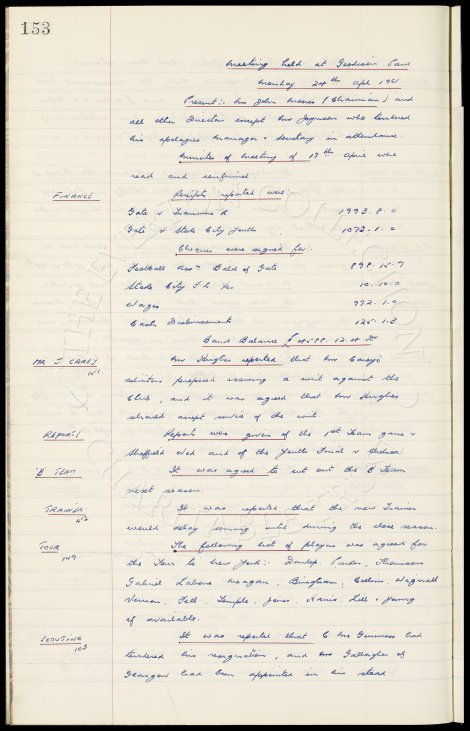 153
Meeting held at Goodison Park
Monday 24th Apl 1961.
Present:- Mr John Moores (Chairman) and
all other Directors except Mr who tendered
his apologies. Manager & Secretary in attendance.
Minutes of Meeting of 17th April were
read and confirmed.
FINANCE Receipts reported were:
Gate v 1993. 8. 0
Gate v Stoke City Youth 1073. 1. 6
Cheques were signed for:-
Football Assn Bald of Gate 898. 15. 7
Stoke City F.C. 10. 10. 0
Wages 772. 1. 9
Cash Disbursements 125. 1. 8
Bank Balance £ 4588. 12. 4 Dr
MR J. CAREY Mr Hughes reported that Mr Carey's
solicitors proposed issuing a writ against the
Club, and it was agreed that Mr Hughes
should accept service of the writ.
REPORTS Reports were given of the 1st Team game v
Sheffield Wed and of the Youth Final v Chelsea
'B' TEAM It was agreed to cut out the 'B' Team
next season.
TRAINER It was reported that the new Trainer
would delay coming until during the close season.
TOUR The following list of players was agreed for
149 the Tour to New York:- Dunlop, Parker, Thomson
Gabriel Labone Meagan, Bingham, Collins Wignall
Vernon, Fell, Temple, Jones, Harris, Lill & Young
if available.
SCOUTING It was reported that Mr Guinness had
tendered his resignation, and Mr Gallagher of
Glasgow had been appointed in his stead.
THE EVERTON COLLECTION
CHARITABLE TRUST